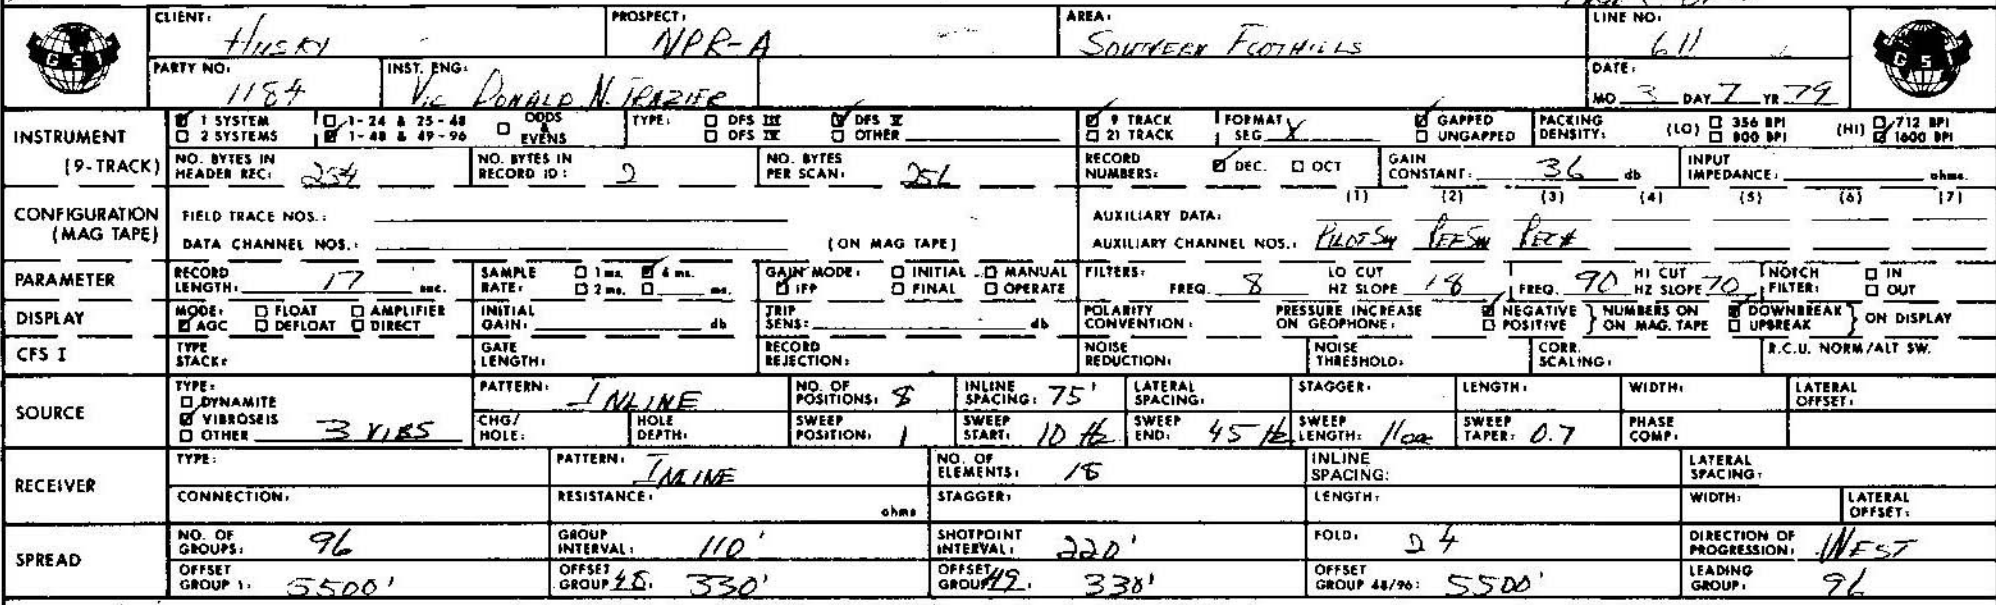 CLIENT: HUSKY PROSPECT: NPR-A AREA: SOUTHERN FOOTHILLS LINE NO: 611
GSI GSI
PARTY NO: 1184 INST. ENG: Vic DONALD N. FRAZIER DATE: MO 3 DAY 7 YR 79
INSTRUMENT (9-TRACK) 1 SYSTEM 1-24 & 25-48 ODDS & EVENS TYPE: DFS III DFS V 9 TRACK FORMAT GAPPED PACKING DENSITY: (LO) 356 BPI (HI) 712 BPI
2 SYSTEMS 1-48 & 49-96 DFS IV OTHER 21 TRACK SEG X UNGAPPED 800 BPI 1600 BPI
NO. BYTES IN HEADER REC: 234 NO. BYTES IN RECORD ID: 2 NO. BYTES PER SCAN: 256 RECORD NUMBERS: DEC. OCT GAIN CONSTANT: 36 db INPUT IMPEDANCE: ohms.
(1) (2) (3) (4) (5) (6) (7)
CONFIGURATION (MAG TAPE) FIELD TRACE NOS.: AUXILIARY DATA:
DATA CHANNEL NOS.: (ON MAG TAPE) AUXILIARY CHANNEL NOS.: PILOT SW REF SW
PARAMETER RECORD LENGTH: 17 sec. SAMPLE RATE: 1 ms. 4 ms. 2 ms. ms. GAIN MODE: INITIAL MANUAL IFP FINAL OPERATE FILTERS: FREQ. 8 LO CUT HZ SLOPE 18 FREQ. 90 HI CUT HZ SLOPE 70 NOTCH FILTER: IN OUT
DISPLAY MODE: FLOAT AMPLIFIER AGC DEFLOAT DIRECT INITIAL GAIN: db TRIP SENS: db POLARITY CONVENTION: PRESSURE INCREASE ON GEOPHONE: NEGATIVE POSITIVE NUMBERS ON ON MAG. TAPE DOWNBREAK UPBREAK ON DISPLAY
CFS I TYPE STACK: GATE LENGTH: RECORD REJECTION: NOISE REDUCTION: NOISE THRESHOLD: CORR. SCALING: R.C.U. NORM/ALT SW.
SOURCE TYPE: DYNAMITE VIBROSEIS OTHER 3 VIBS PATTERN: INLINE NO. OF POSITIONS: 8 INLINE SPACING: 75' LATERAL SPACING: STAGGER: LENGTH: WIDTH: LATERAL OFFSET:
CHG/HOLE: HOLE DEPTH: SWEEP POSITION: 1 SWEEP START: 10 Hz SWEEP END: 45 Hz SWEEP LENGTH: 11 SWEEP TAPER: 0.7 PHASE COMP:
RECEIVER TYPE: PATTERN: INLINE NO. OF ELEMENTS: 18 INLINE SPACING: LATERAL SPACING:
CONNECTION: RESISTANCE: ohms STAGGER: LENGTH: WIDTH: LATERAL OFFSET:
SPREAD NO. OF GROUPS: 96 GROUP INTERVAL: 110' SHOTPOINT INTERVAL: 220' FOLD: 24 DIRECTION OF PROGRESSION: WEST
OFFSET GROUP 1: 5500' OFFSET GROUP 48: 330' OFFSET GROUP 49: 330' OFFSET GROUP 48/96: 5500' LEADING GROUP: 96